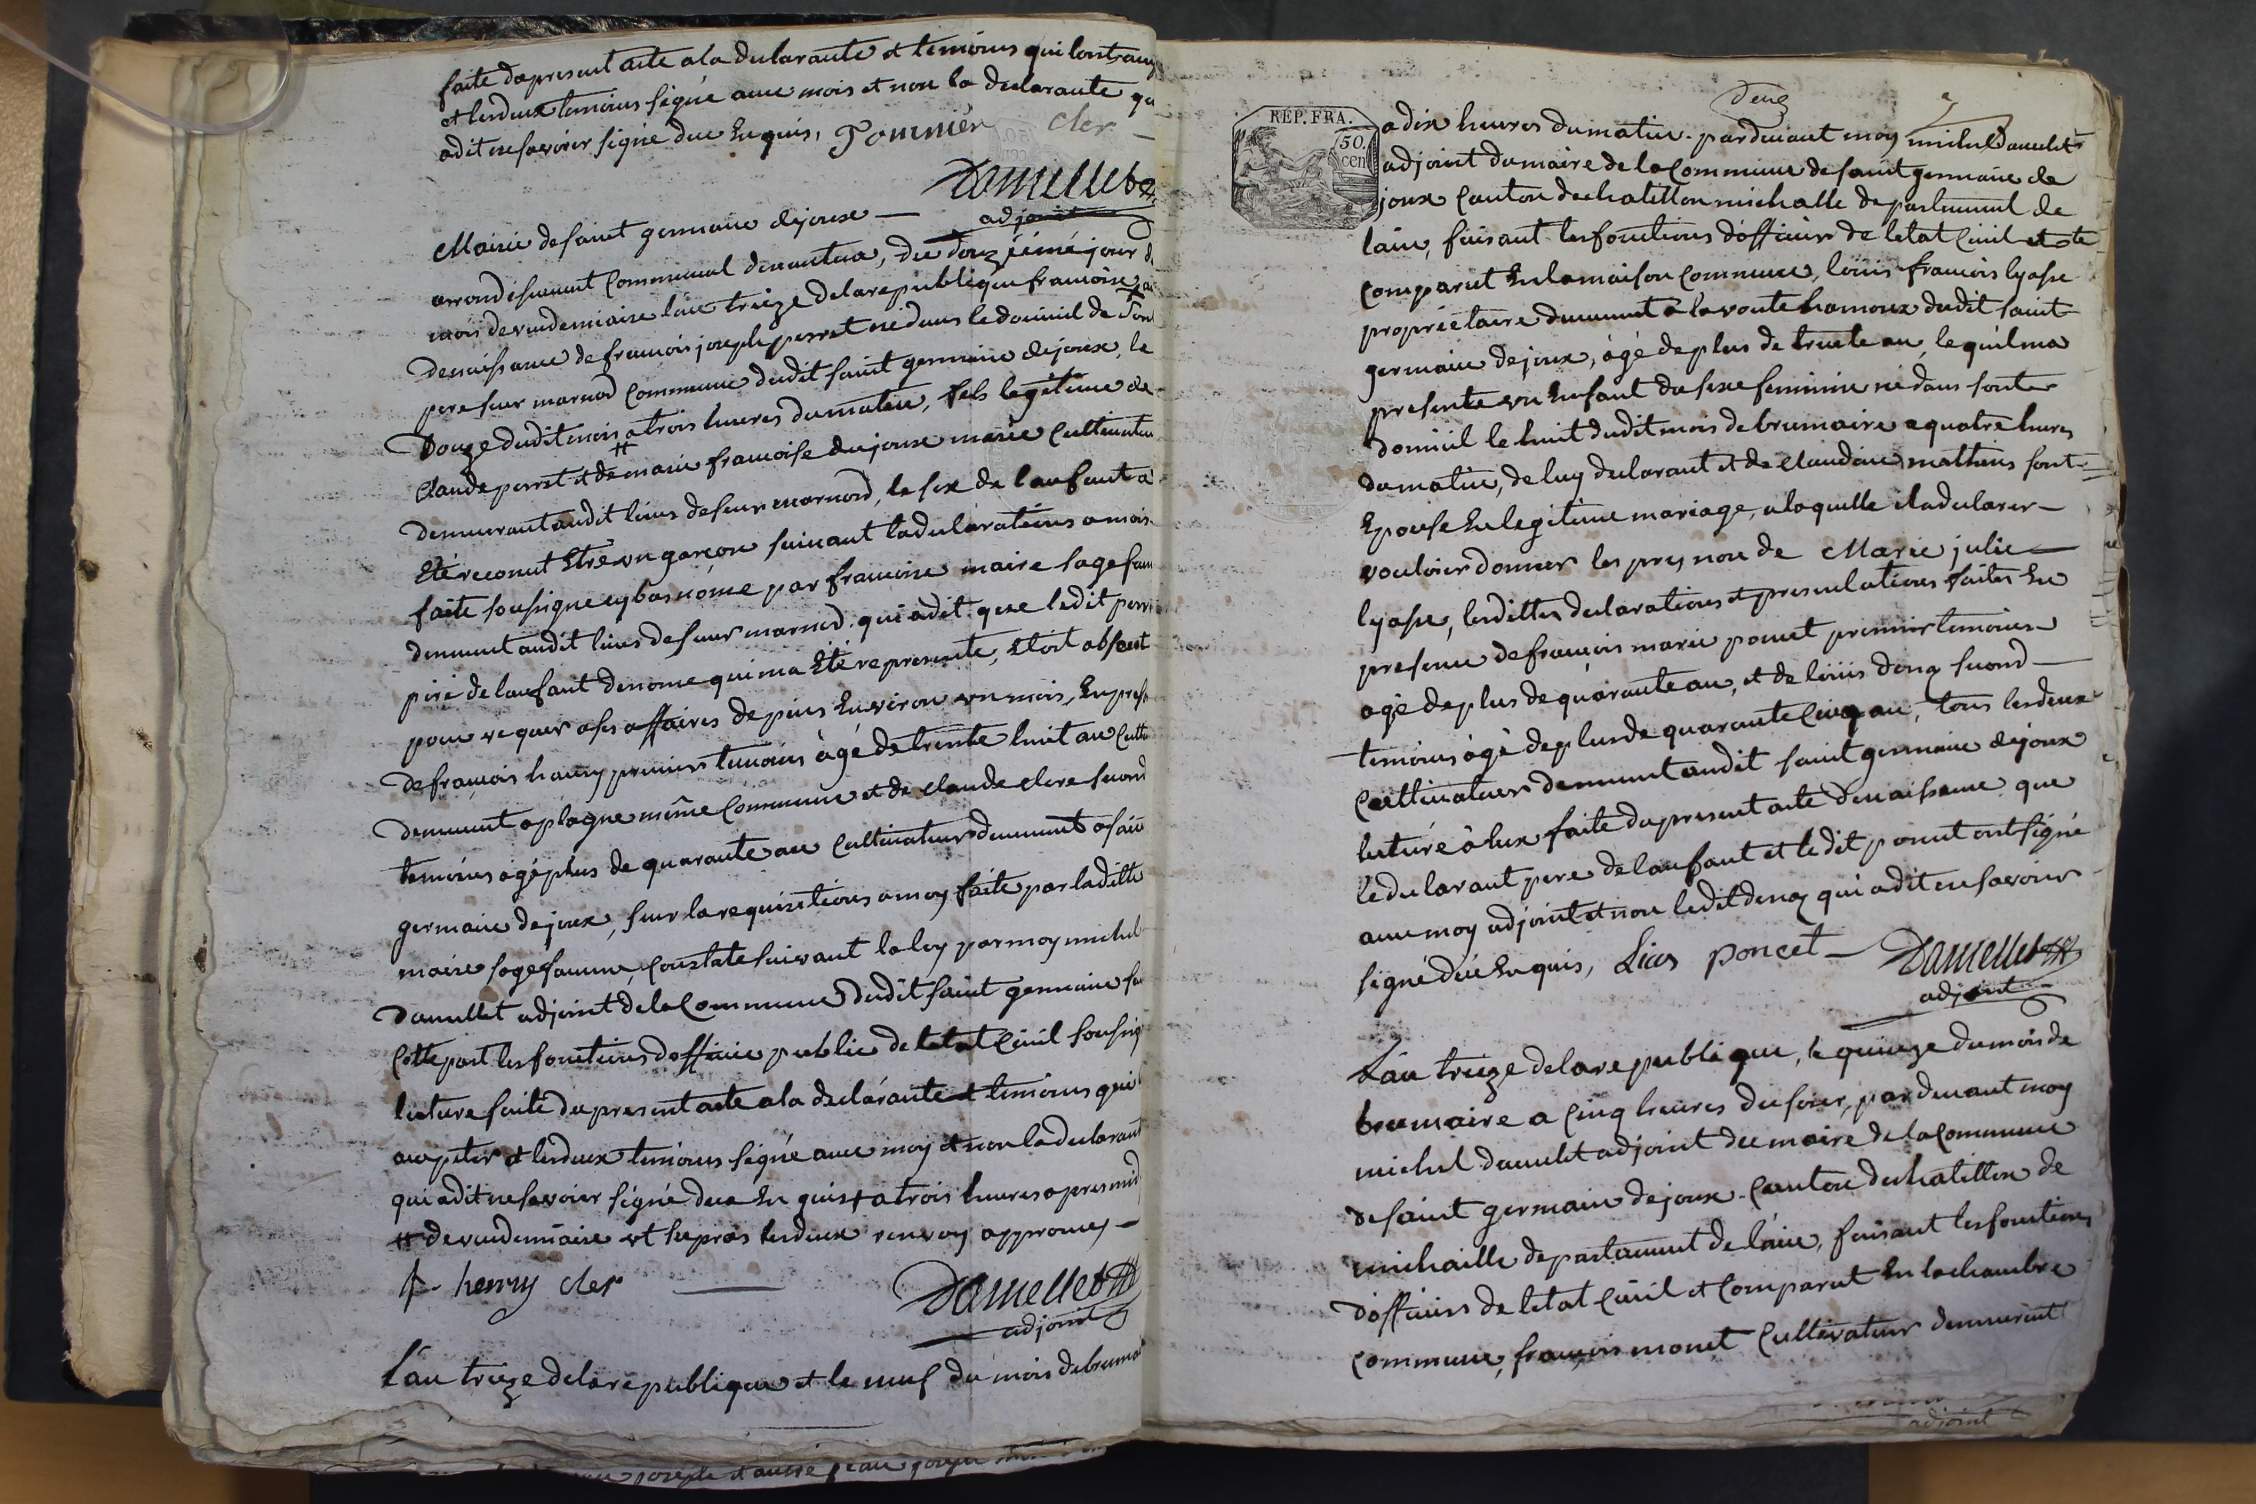 faite du present acte a la declarante et temoins qui lont
et les deux temoins signé avec mois et non la declarante qu
a dit ne savoir signé due Enquis, Pommier cler
Damellet
adjoint
Mairie de saint germain de joux
arrondissement Communal de nantua, du douziémé jour d
mois de vendemiaire lan treize de la republique francoise
de naissance de francois joseph perret né dans le domicil de Son
pere sur marnod Commune dudit saint germain de joux, le
Douze dudit mois a trois heures du matin, fils legitime de
Claude perret et de marie francoise dujoux marié Cultivateur
demeurant audit lieu de sur marnod, le sex de lanfant a
Eté reconut Etre un garçon suivant la declaration a mois
faite soussigne cy bas nomé par francoise maire sagefam
demeurt audit lieu de sur marnod qui a dit que ledit perr
peré de lanfant denomé qui ma Eté represente, Etoit absent
pour vequer a ses affaires depuis Environ un mois, En pres
de francois henry premier temoins àgé de trente huit an Cult
demeurt a plagne même Commune et de claude clere second
temoins agé plus de quarante an Cultivateur demeurt a sain
germain de joux, sur la requisitions a moy faite par laditte
maire sagefamme, Constate suivant la loy par moy michel
Damellet adjoint de la Commune dudit saint germain
Cette part les fonctions dofficie public de letat Civil soussig
lecture faite du present acte a la declárante et temoins qui
accepter et les deux temoins signé avec moy et non la declarant
qui a dit ne savoir signé due En quis + a trois heures apres mid
# de vendemiaire et les deux renvoy approuvez
f. henry cler
Damellet
adjoint
Lan treize de la republique et le neuf du mois de bruma
deux
REP. FRA.
50. cen
a dix heures du matin. par devant moy michel Damellet
adjoint du maire de la Commune de saint germain de
joux Canton de chatillon michalle departement de
lain, faisant les fonctions d'officier de letat Civil et
comparut En la maison Commune, loüis francois lyasse
proprietaire demeurt a la voute hamoux dudit saint
germain de joux, ágé de plus de trente an, lequél ma
presente un Enfant du sexe feminin né dans sont
Domicil le huit dudit mois de brumaire a quatre heures
du matin, de luy declarant et de claudine mathieu sont
Epouse En legitime mariage, a laquelle il a declarer
vouloir donner les preynon de Marie julie
lyasse, lesdittes declarations et presentations faites En
presence de francois marie poncet premier temoins
agé de plus de quarante an, et de loüis second
temoins ágé de plus de quarante Cinq an, tous les deux
Cultivateur demeurt audit saint germain de joux
lecturé á Eux faite du present acte de naissance que
le declarant pere de lanfant et le dit poncet ont signé
avec moy adjoint et non ledit qui a dit ne savoir
signé due Enquis, Lias poncet Damellet
adjoint
Lan treize de la republique, le quinze du mois de
brumaire a Cinq heures du soir, par devant moy
michel Damellet adjoint du maire de la Commune
de saint germain de joux Canton de chatillon de
michaille departement de láin, faisant les fonctions
d'officiers de letat Civil et Comparut En la chambre
commune, francois monet Cultivateur demeurant
adjoint